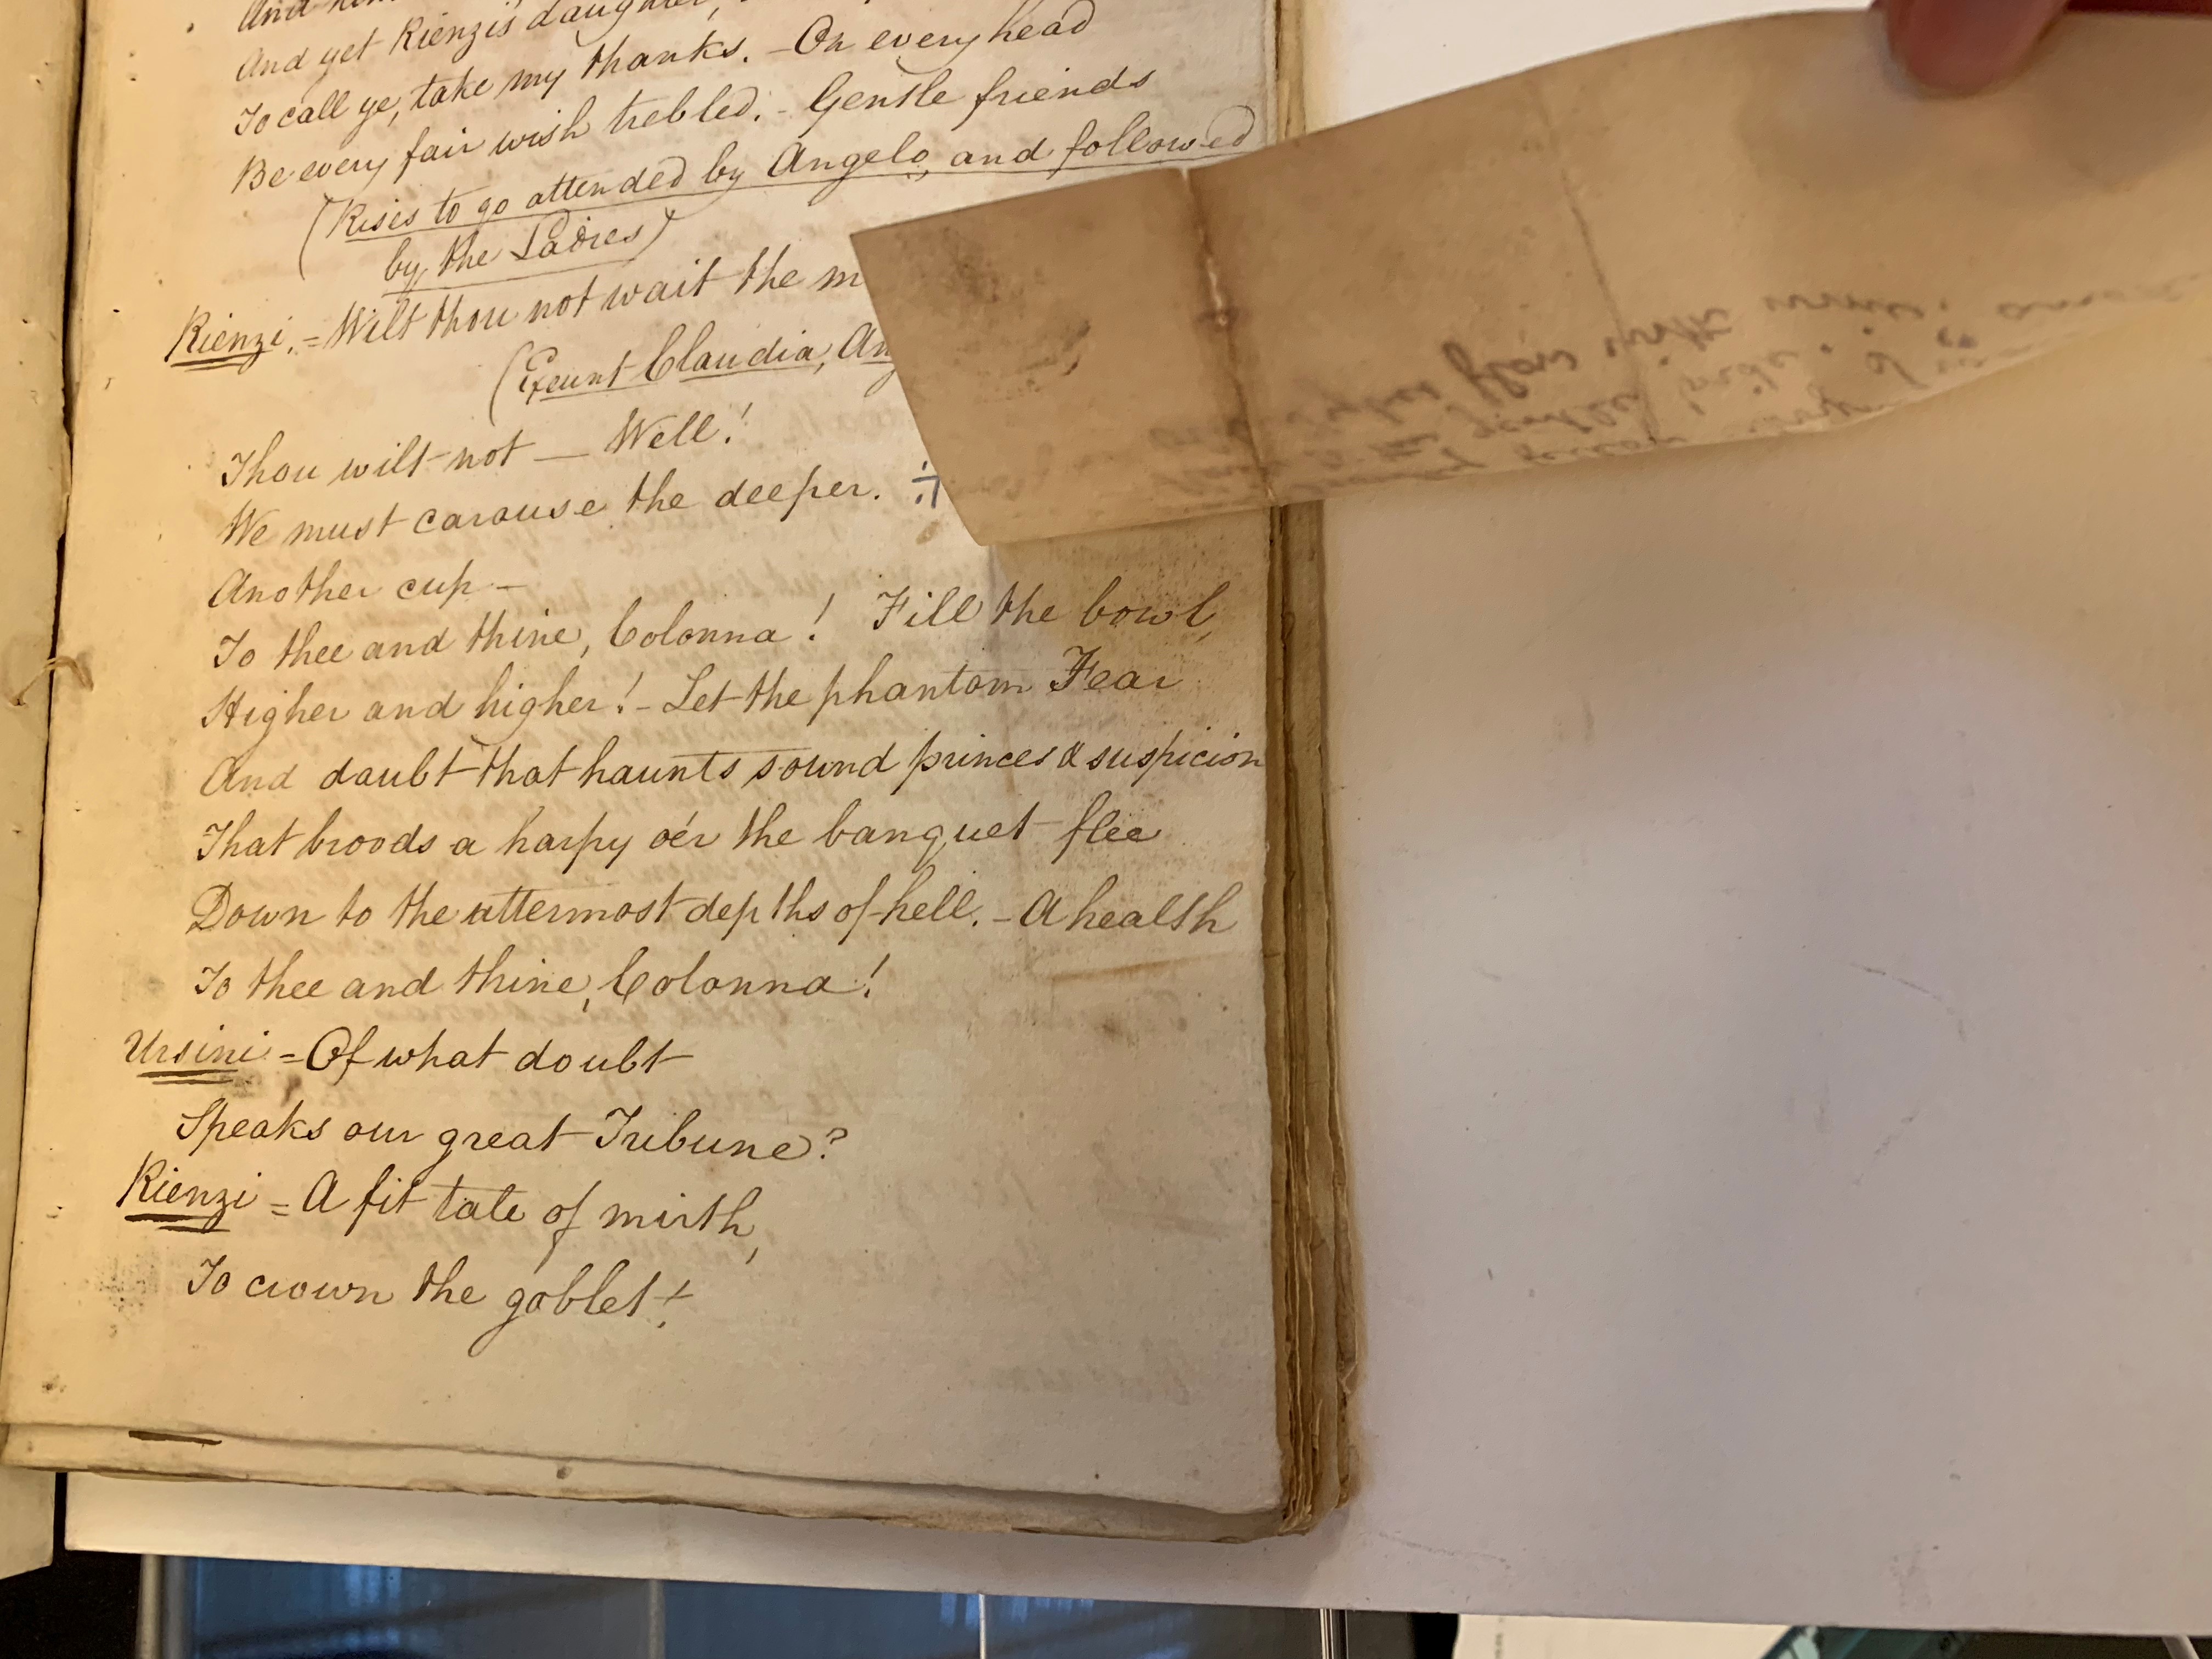 And yet Rienzi's daughter,
To call ye, take my thanks. - On every head
Be every fair wish trebled. - Gentle friends
(Rises to go attended by Angelo, and followed
by the Ladies)
Rienzi. = Wilt thou not wait the m
(Exeunt Claudia, Ang
Thou wilt not — Well!
We must carouse the deeper.
Another cup —
To thee and thine, Colonna! Fill the bowl,
Higher and higher! - Let the phantom Fear
And doubt that haunts sound princes & suspicion
That broods a harpy o'er the banquet flee
Down to the uttermost depths of hell. - A health
To thee and thine, Colonna!
Ursini = Of what doubt
Speaks our great Tribune?
Rienzi = A fit tale of mirth,
To crown the goblet!